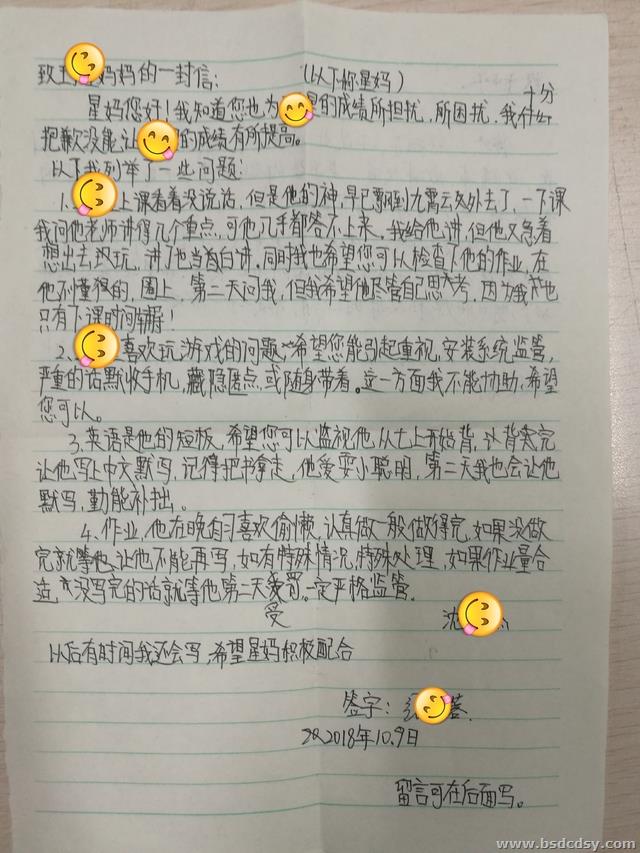 致王妈妈的一封信: (以下称星妈)
星妈您好!我知道您也为星的成绩所担扰,所困扰,我十分
抱歉没能让的成绩有所提高。
以下我列举了一些问题:
1.上课看着没说话,但是他的神,早已飘到九霄云外去了,一下课
我问他老师讲得几个重点,可他几乎都答不上来。我给他讲,但他又急着
想出去玩,讲了也当没白讲,同时我也希望您可以检查下他的作业,在
他不懂得的,圈上,第二天问我,但我希望他尽管自己思考,因为我也
只有下课时间辅导!
2、喜欢玩游戏的问题,希望您能引起重视,安装系统监管,
严重的话默收手机,藏隐匿点,或随身带着。这一方面我不能协助,希望
您可以。
3、英语是他的短板,希望您可以监视他,从七上开始背,背完
让他写上中文默写,记得把书拿走,他爱耍小聪明,第二天我也会让他
默写,勤能补拙。
4、作业,他在晚自习喜欢偷懒,认真做一般做得完,如果没做
完就等他,让他不能再写,如有特殊情况,特殊处理,如果作业量合
适,没写完的话就等他第二天受罚。一定严格监管.
受
沈
以后有时间我还会写,希望星妈积极配合
签字:
2018年10.9日
留言可在后面写。
www.bsdcdsy.com